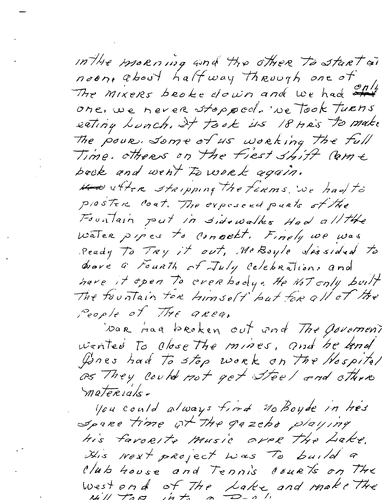 in the morning and the other to start at
noon, about halfway through one of
The mixers broke down and we had only
one, we never stopped. we Took Turns
eating Lunch. It Took us 18 Hrs to make
the pour. Some of us working the full
Time. others on the first shift came
back and went to work again.
after stripping the forms, we had to
plaster coat. The exposed parts of the
Fountain put in sidewalks Had all the
water pipes to Connect. Finely we was
ready to Try it out, Mr Boyle dessided to
have a Fourth of July Celebration and
have it open to everbody. He Not only built
The fountain for himself but for all of the
People of The area.
War had broken out and The Goverment
wanted to close the mines, and he and
Jones had to stop work on The Hospital
as They could not get Steel and other
materials.
You could always find Mr Boyle in his
spare time at the gazebo playing
his favorite music over the Lake.
His Next project was To build a
club house and Tennis Courts on the
west end of The Lake and make the
Hill Top into a